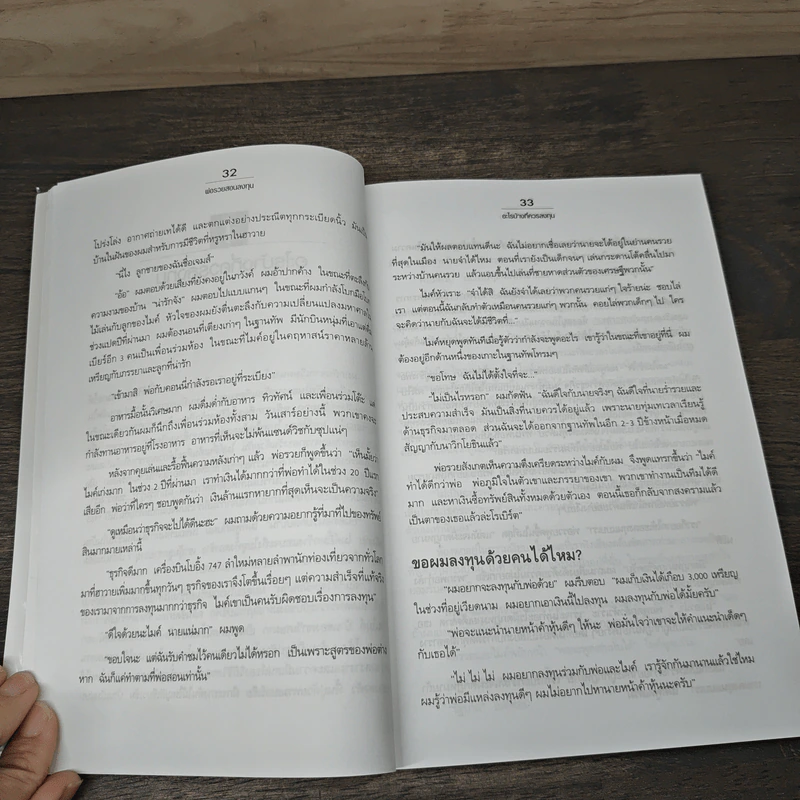 32
พ่อรวยสอนลงทุน
โปร่งโล่ง อากาศถ่ายเทได้ดี และตกแต่งอย่างประณีตทุกกระเบียดนิ้ว มันเป็น
บ้านในฝันของผมสำหรับการมีชีวิตที่หรูหราในฮาวาย
"นี่ไง ลูกชายของฉันชื่อเจมส์"
"อ้อ" ผมตอบด้วยเสียงที่ยังคงอยู่ในภวังค์ ผมอ้าปากค้าง ในขณะที่ตะลึงกับ
ความงามของบ้าน "น่ารักจัง" ผมตอบไปแบบแกนๆ ในขณะที่ผมกำลังโบกมือ
ไม้เล่นกับลูกของไมค์ หัวใจของผมยังตื่นตะลึงกับความเปลี่ยนแปลงมหาศาล
ช่วงแปดปีที่ผ่านมา ผมต้องนอนที่เตียงเก่าๆ ในฐานทัพ มีนักบินหนุ่มที่เอาแต่
เบียร์อีก 3 คนเป็นเพื่อนร่วมห้อง ในขณะที่ไมค์อยู่ในคฤหาสน์ราคาหลายล้าน
เหรียญกับภรรยาและลูกที่น่ารัก
"เข้ามาสิ พ่อกับคอนนี่กำลังรอเราอยู่ที่ระเบียง"
อาหารมื้อนั้นวิเศษมาก ผมดื่มด่ำกับอาหาร ทิวทัศน์ และเพื่อนร่วมโต๊ะ
ในขณะเดียวกันผมก็นึกถึงเพื่อนร่วมห้องทั้งสาม วันเสาร์อย่างนี้ พวกเขาคงจะ
กำลังทานอาหารอยู่ที่โรงอาหาร อาหารที่เห็นจะไม่พ้นแซนด์วิชกับซุปแน่ๆ
หลังจากคุยเล่นและรื้อฟื้นความหลังเก่าๆ แล้ว พ่อรวยก็พูดขึ้นว่า "เห็นมั้ยว่า
ไมค์เก่งมาก ในช่วง 2 ปีที่ผ่านมา เราทำเงินได้มากกว่าที่พ่อทำได้ในช่วง 20 ปีแรก
เสียอีก พ่อว่าที่ใครๆ ชอบพูดกันว่า เงินล้านแรกหายากที่สุดเห็นจะเป็นความจริง"
"ดูเหมือนว่าธุรกิจจะไปได้ดีนะฮะ" ผมถามด้วยความอยากรู้ที่มาที่ไปของทรัพย์
สินมากมายเหล่านี้
"ธุรกิจดีมาก เครื่องบินโบอิ้ง 747 ลำใหม่หลายลำพานักท่องเที่ยวจากทั่วโลก
มาที่ฮาวายเพิ่มมากขึ้นทุกวันๆ ธุรกิจของเราจึงโตขึ้นเรื่อยๆ แต่ความสำเร็จที่แท้จริง
ของเรามาจากการลงทุนมากกว่าธุรกิจ ไมค์เขาเป็นคนรับผิดชอบเรื่องการลงทุน"
"ดีใจด้วยนะไมค์ นายแน่มาก" ผมพูด
"ขอบใจนะ แต่ฉันรับคำชมไว้คนเดียวไม่ได้หรอก เป็นเพราะสูตรของพ่อต่าง
หาก ฉันก็แค่ทำตามที่พ่อสอนเท่านั้น"
33
อะไรบ้างที่ควรลงทุน
"มันให้ผลตอบแทนดีนะ ฉันไม่อยากเชื่อเลยว่านายจะได้อยู่ในย่านคนรวย
ที่สุดในเมือง นายจำได้ไหม ตอนที่เรายังเป็นเด็กจนๆ เล่นกระดานโต้คลื่นไปมา
ระหว่างบ้านคนรวย แล้วแอบขึ้นไปเล่นที่ชายหาดส่วนตัวของเศรษฐีพวกนั้น"
ไมค์หัวเราะ "จำได้สิ ฉันยังจำได้เลยว่าพวกคนรวยแก่ๆ ใจร้ายน่ะ ชอบไล่
เรา แต่ตอนนี้ฉันกลับทำตัวเหมือนคนรวยแก่ๆ พวกนั้น คอยไล่พวกเด็กๆ ไป ใคร
จะคิดว่านายกับฉันจะได้มีชีวิตที่..."
ไมค์หยุดพูดทันทีเมื่อรู้ตัวว่ากำลังจะพูดอะไร เขารู้ว่าในขณะที่เขาอยู่ที่นี่ ผม
ต้องอยู่อีกด้านหนึ่งของเกาะในฐานทัพโทรมๆ
"ขอโทษ ฉันไม่ได้ตั้งใจที่จะ..."
"ไม่เป็นไรหรอก" ผมกัดฟัน "ฉันดีใจกับนายจริงๆ ฉันดีใจที่นายร่ำรวยและ
ประสบความสำเร็จ มันเป็นสิ่งที่นายควรได้อยู่แล้ว เพราะนายทุ่มเทเวลาเรียนรู้
ด้านธุรกิจมาตลอด ส่วนฉันจะได้ออกจากฐานทัพในอีก 2-3 ปีข้างหน้าเมื่อหมด
สัญญากับนาวิกโยธินแล้ว"
พ่อรวยสังเกตเห็นความตึงเครียดระหว่างไมค์กับผม จึงพูดแทรกขึ้นว่า "ไมค์
ทำได้ดีกว่าพ่อ พ่อภูมิใจในตัวเขาและภรรยาของเขา พวกเขาทำงานเป็นทีมได้ดี
มาก และหาเงินซื้อทรัพย์สินทั้งหมดด้วยตัวเอง ตอนนี้เธอก็กลับจากสงครามแล้ว
เป็นตาของเธอแล้วล่ะโรเบิร์ต"
ขอผมลงทุนด้วยคนได้ไหม?
"ผมอยากจะลงทุนกับพ่อด้วย" ผมรีบตอบ "ผมเก็บเงินได้เกือบ 3,000 เหรียญ
ในช่วงที่อยู่เวียดนาม ผมอยากเอาเงินนี้ไปลงทุน ผมลงทุนกับพ่อได้มั้ยครับ"
"พ่อจะแนะนำนายหน้าค้าหุ้นดีๆ ให้นะ พ่อมั่นใจว่าเขาจะให้คำแนะนำเด็ดๆ
กับเธอได้"
"ไม่ ไม่ ไม่ ผมอยากลงทุนร่วมกับพ่อและไมค์ เรารู้จักกันมานานแล้วใช่ไหม
ผมรู้ว่าพ่อมีแหล่งลงทุนดีๆ ผมไม่อยากไปหานายหน้าค้าหุ้นนะครับ"